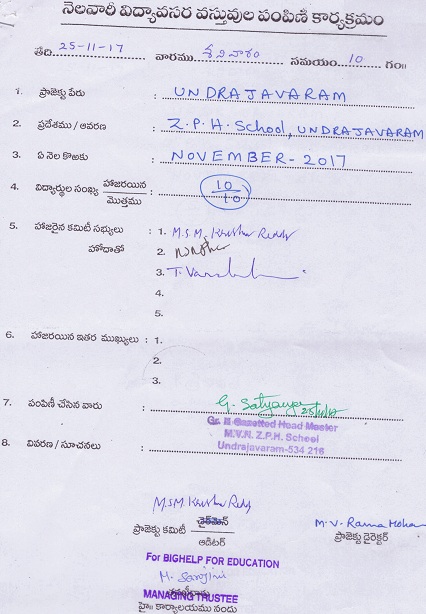 నెలవారీ విద్యావసర వస్తువుల పంపిణీ కార్యక్రమం
తేది 25-11-17 వారము శనివారం సమయం 10 గం॥
1. ప్రాజెక్టు పేరు : UNDRAJAVARAM
2. ప్రదేశము / ఆవరణ : Z.P.H. School, UNDRAJAVARAM
3. ఏ నెల కొఱకు : NOVEMBER - 2017
4. విద్యార్థుల సంఖ్య హాజరయిన / మొత్తము : 10 / 10
5. హాజరైన కమిటీ సభ్యులు : 1. M.S.M. Krishna Reddy
హోదాతో 2.
3. T.
4.
5.
6. హాజరయిన ఇతర ముఖ్యులు : 1.
2.
3.
7. పంపిణీ చేసిన వారు : G. 25/11/17
Gr. II Gazetted Head Master
M.V.N. Z.P.H. School
8. వివరణ / సూచనలు : Undrajavaram-534 216
M.S.M. Krishna Reddy
ప్రాజెక్టు కమిటీ చైర్మెన్ / ఆడిటర్
M.V. Rama Mohan
ప్రాజెక్టు డైరెక్టర్
For BIGHELP FOR EDUCATION
M. Sarojini
MANAGING TRUSTEE
హై॥ కార్యాలయము నందు